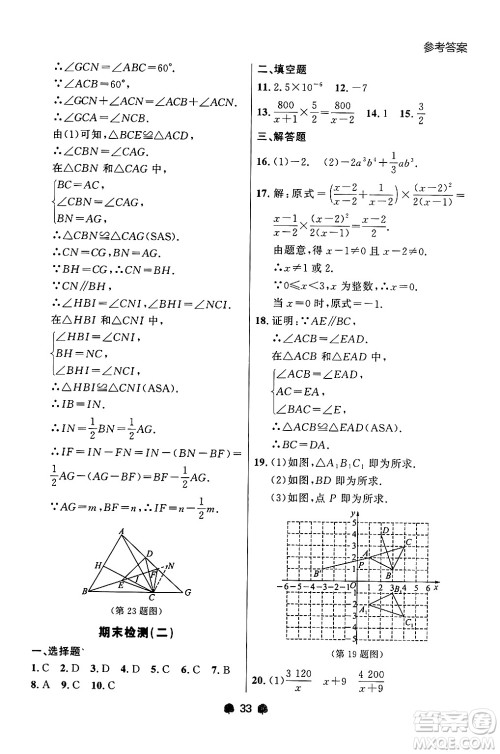 参考答案
∴∠GCN=∠ABC=60°.
∵∠ACB=60°,
∴∠GCN+∠ACN=∠ACB+∠ACN,
∴∠GCA=∠NCB.
由(1)可知,△BCE≌△ACD,
∴∠CBN=∠CAG.
在△CBN和△CAG中,
BC=AC,
∠CBN=∠CAG,
BN=AG,
∴△CBN≌△CAG(SAS).
∴CN=CG,BH=CN.
∵BH=CG,BN=AG,
∵CN∥BH,
∴∠HBI=∠CNI.
在△HBI和△CNI中,
∠HBI=∠CNI,
BH=NC,
∠BHI=∠NCI,
∴△HBI≌△CNI(ASA).
∴IB=IN.∴IN=1/2BN=1/2AG.
∴IF=IN-FN=1/2AG-(BN-BF)=1/2AG-(AG-BF)=BF-1/2AG.
∵AG=m,BF=n,∴IF=n-1/2m.
A
D
H
N
F
E
I
B
C
G
(第23题图)
期末检测(二)
一、选择题
1.C 2.D 3.D 4.C 5.C 6.B 7.B
8.A 9.C 10.C
二、填空题
11.2.5×10⁻⁶ 12.-7
13.800/(x+1)×5/2=800/(x-2) 14.1 15.3/2
三、解答题
16.(1)-2. (2)-2a³b⁴+1/3ab³.
17.解:原式=((x-2)/(x-2)+1/(x-2))×(x-2)/(x-1)²=
(x-1)/(x-2)×(x-2)/(x-1)²=1/(x-1).
由题意,得x-1≠0且x-2≠0,
∴x≠1或2.
∵0≤x<3,x为整数,∴x=0.
当x=0时,原式=-1.
18.证明:∵AE∥BC,
∴∠ACB=∠EAD.
在△ABC和△EDA中,
∠ACB=∠EAD,
AC=EA,
∠BAC=∠E,
∴△ABC≌△EDA(ASA).
∴BC=DA.
19.(1)如图,△A₁B₁C₁即为所求.
(2)如图,△A₂B₂C₂即为所求.
(3)如图,点P即为所求.
(第19题图)
20.(1)3 120/x x+9 4 200/(x+9)
33